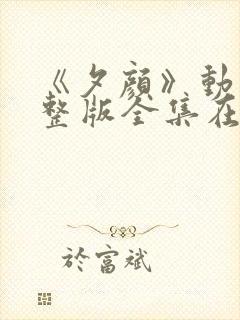 《夕顔》動
整版全集在
於富斌